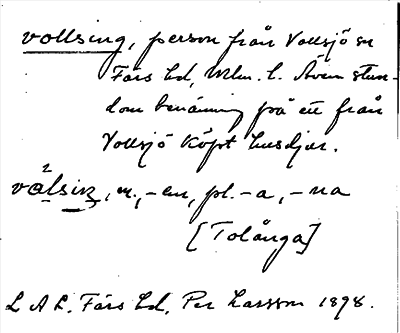 vollsing, person från Vollsjö sn
Färs hd, Mlm. l. Även stun-
dom benämning på ett från
Vollsjö köpt husdjur.
m., -en, pl. -a, -na
[Tolånga]
L A L. Färs hd, Per Larsson 1898.